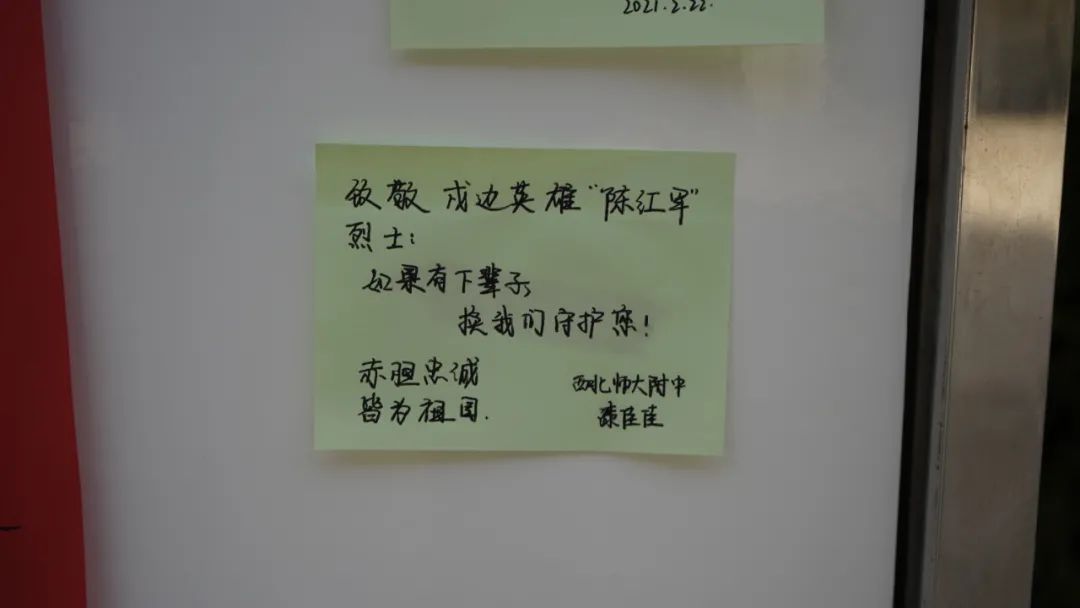 2021.2.22.
致敬 戍边英雄“陈红军”
烈士：
如果有下辈子，
换我们守护您！
赤胆忠诚
皆为祖国.
西北师大附中
佳佳